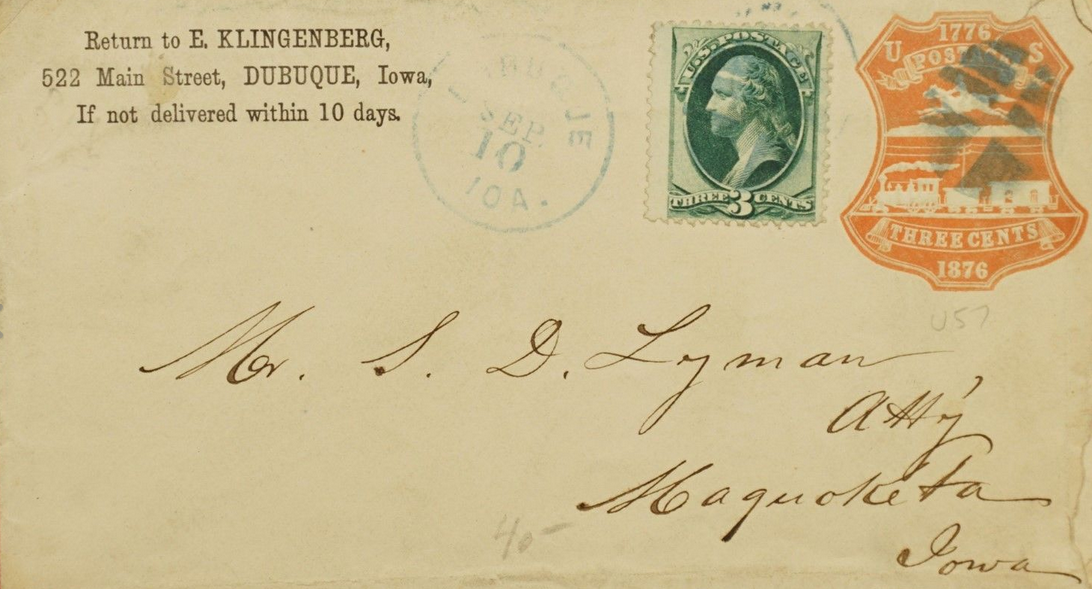 Return to E. KLINGENBERG,
522 Main Street, DUBUQUE, Iowa,
If not delivered within 10 days.
SEP
10
IOA.
U.S. POSTAGE
THREE 3 CENTS
1776
U POSTAGE S
THREE CENTS
1876
U57
Mr. S. D. Lyman
Att'y
Maquoketa
Iowa
40-